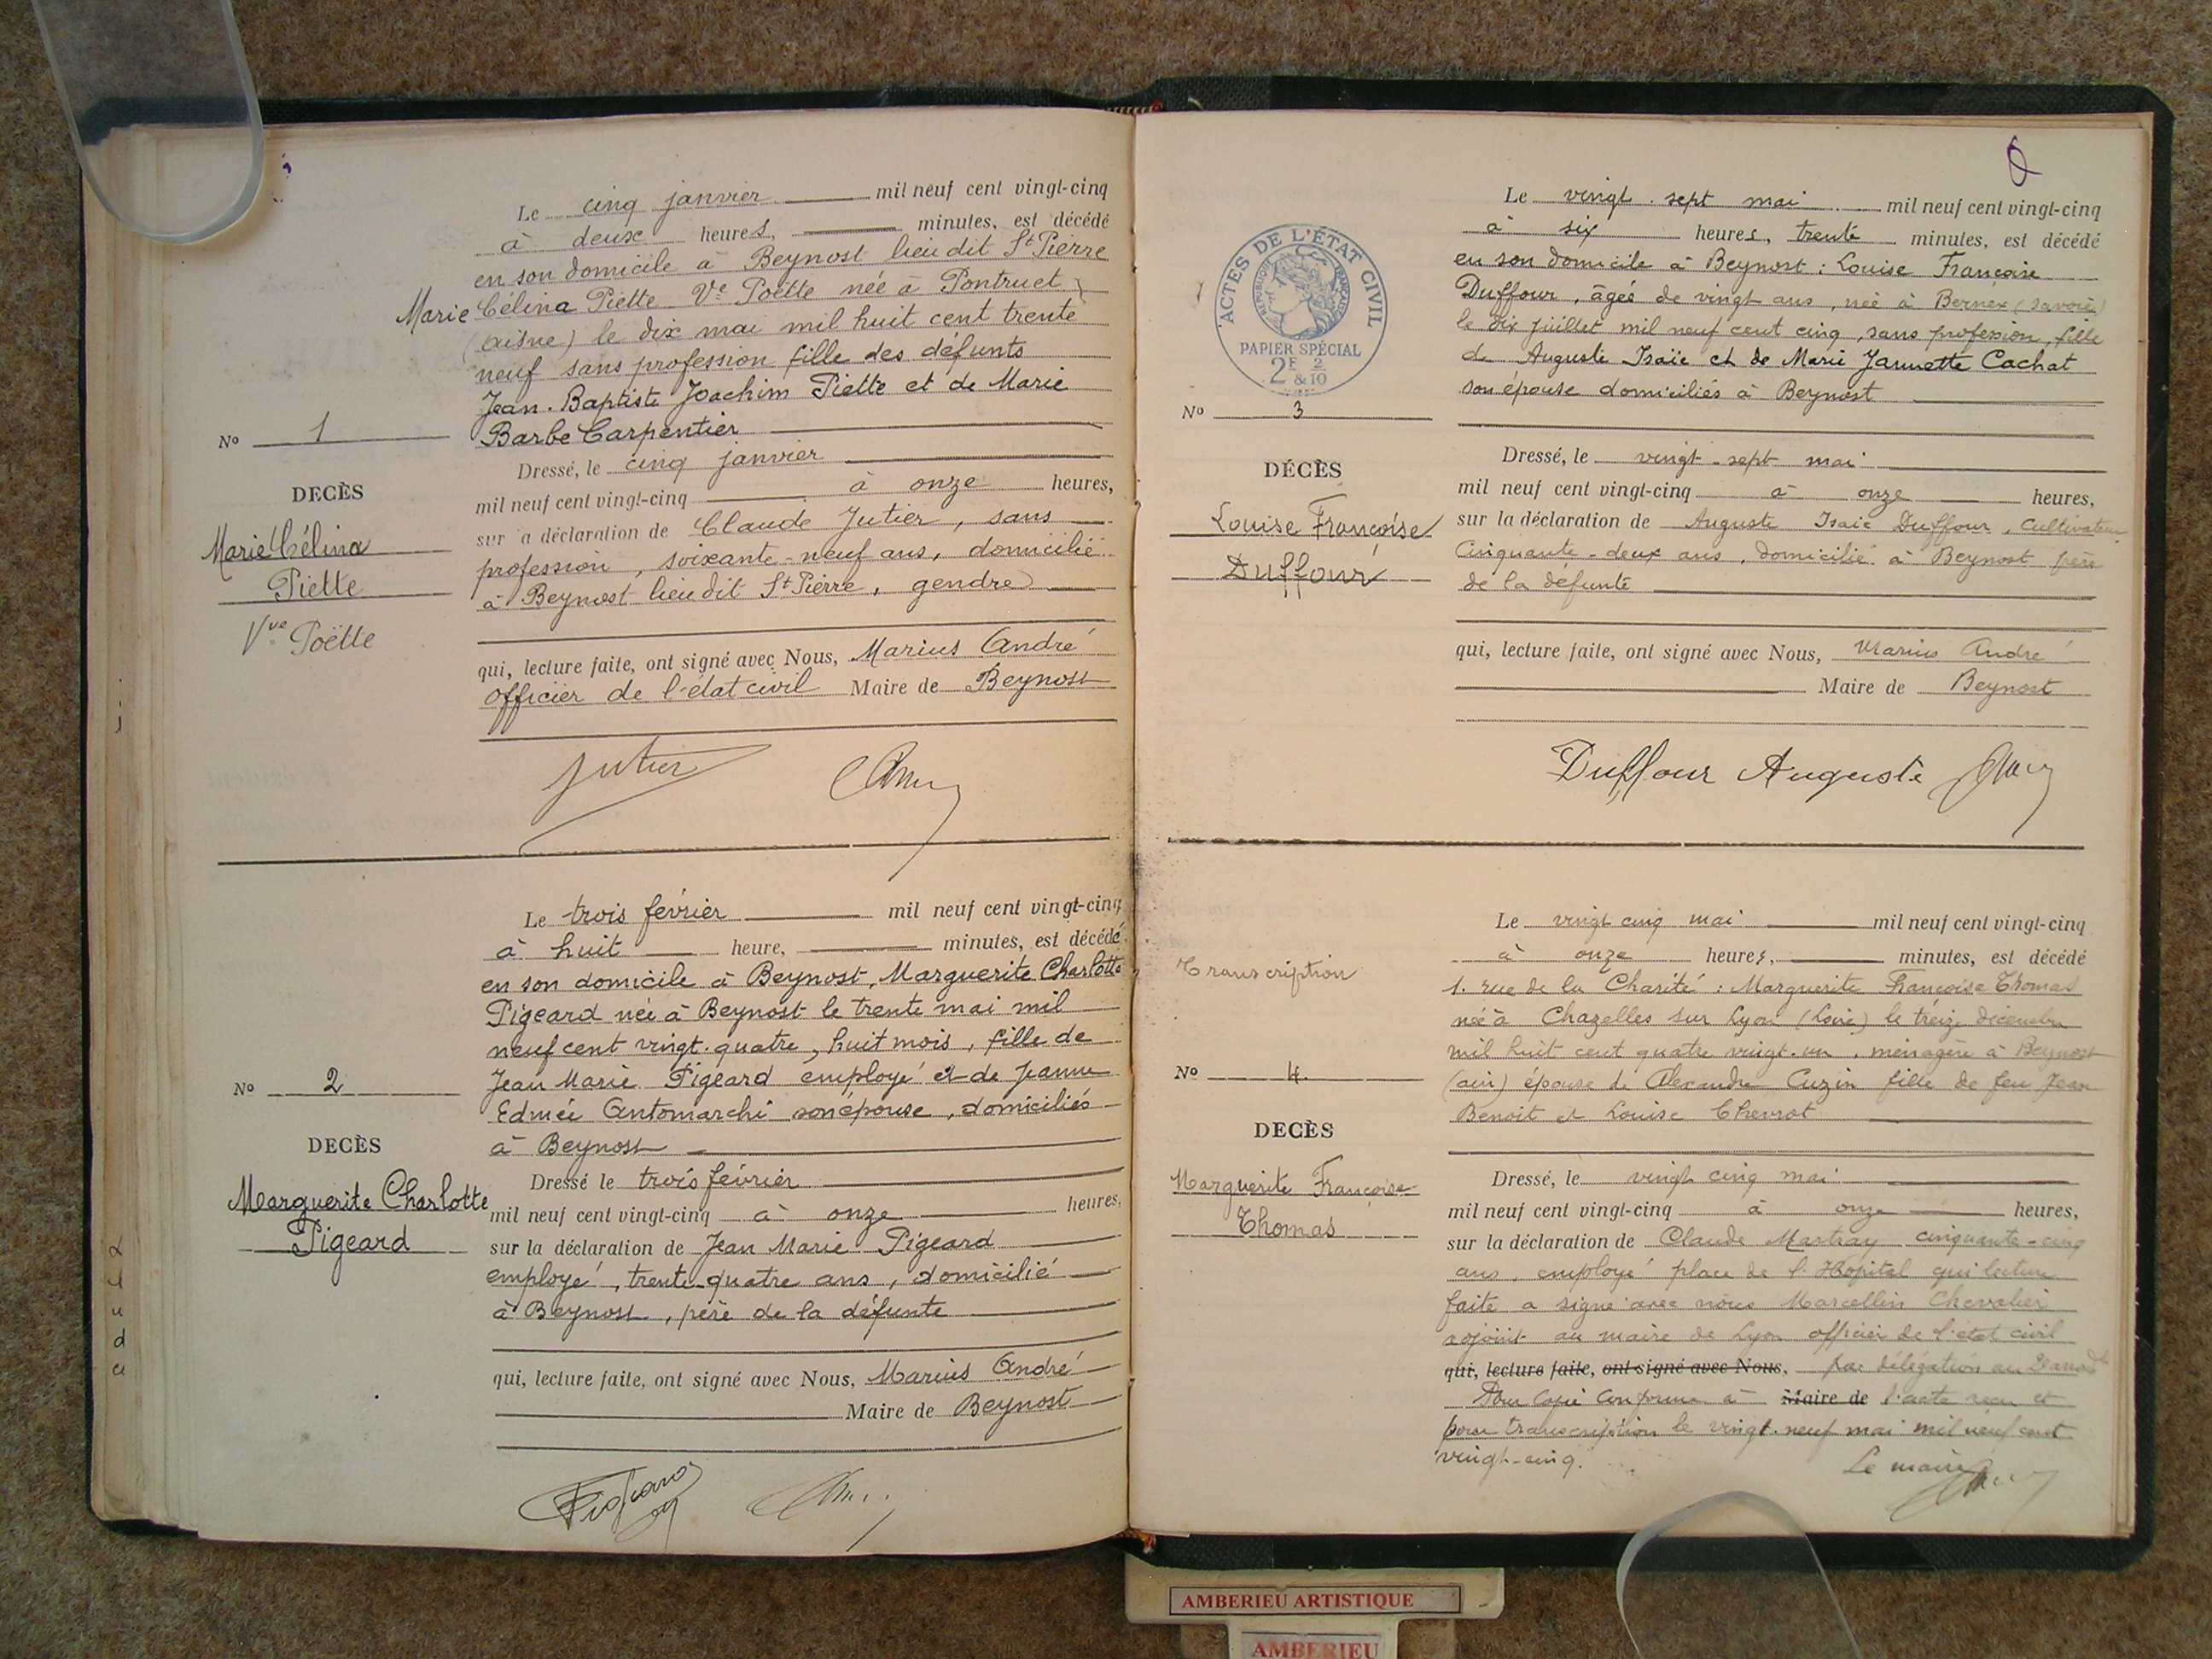 Le cinq janvier mil neuf cent vingt-cinq
à deux heures, minutes, est décédé
en son domicile à Beynost lieu dit St Pierre
Marie Célina Piette Ve Poëtte née à Pontruet
(aisne) le dix mai mil huit cent trente
neuf sans profession fille des défunts
Jean-Baptiste Joachim Piette et de Marie
Barbe Carpentier
No 1
DECÈS
Marie Célina
Piette
Vve Poëtte
Dressé, le cinq janvier
mil neuf cent vingt-cinq à onze heures,
sur a déclaration de Claude Jutier, sans
profession, soixante-neuf ans, domicilié
à Beynost lieu dit St Pierre, gendre
qui, lecture faite, ont signé avec Nous, Marius André
officier de l'état civil Maire de Beynost
Jutier
Le trois février mil neuf cent vingt-cinq
à huit heure, minutes, est décédé
en son domicile à Beynost, Marguerite Charlotte
Pigeard née à Beynost le trente mai mil
neuf cent vingt-quatre, huit mois, fille de
Jean Marie Pigeard employé et de Jeanne
Edmée Antomarchi son épouse, domiciliés
à Beynost
No 2
DECÈS
Marguerite Charlotte
Pigeard
Dressé le trois février
mil neuf cent vingt-cinq à onze heures,
sur la déclaration de Jean Marie Pigeard
employé, trente-quatre ans, domicilié
à Beynost, père de la défunte
qui, lecture faite, ont signé avec Nous, Marius André
Maire de Beynost
Le vingt-sept mai mil neuf cent vingt-cinq
à six heures, trente minutes, est décédé
en son domicile à Beynost : Louise Françoise
Duffour, âgée de vingt ans, née à Bernex (Savoie)
le dix juillet mil neuf cent cinq, sans profession, fille
de Auguste Isaïe et de Marie Jannette Cachat
son épouse domiciliés à Beynost
ACTES DE L'ÉTAT CIVIL
RÉPUBLIQUE FRANÇAISE
PAPIER SPÉCIAL
2F 2/10
& 10
No 3
DÉCÈS
Louise Françoise
Duffour
Dressé, le vingt-sept mai
mil neuf cent vingt-cinq à onze heures,
sur la déclaration de Auguste Isaïe Duffour, cultivateur
cinquante-deux ans, domicilié à Beynost père
de la défunte
qui, lecture faite, ont signé avec Nous, Marius André
Maire de Beynost
Duffour Auguste
Le vingt cinq mai mil neuf cent vingt-cinq
à onze heures, minutes, est décédé
1. rue de la Charité : Marguerite Françoise Thomas
née à Chazelles sur Lyon (Loire) le treize décembre
mil huit cent quatre vingt-un, ménagère à Beynost
(ain) épouse de Alexandre Cuzin fille de feu Jean
Benoit et Louise Chevrot
Transcription
No 4
DECÈS
Marguerite Françoise
Thomas
Dressé, le vingt cinq mai
mil neuf cent vingt-cinq à onze heures,
sur la déclaration de Claude Martray cinquante-cinq
ans, employé place de l'Hôpital qui lecture
faite a signé avec nous Marcellin Chevalier
adjoint au maire de Lyon officier de l'état civil
qui, lecture faite, ont signé avec Nous, par délégation
Pour copie conforme à Maire de l'acte reçu et
pour transcription le vingt-neuf mai mil neuf cent
vingt-cinq.
Le maire
AMBERIEU ARTISTIQUE
AMBERIEU